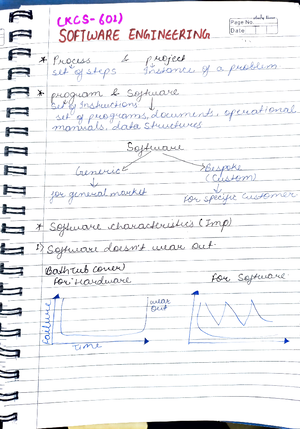 (KCS-601)
Page No.
Date
SOFTWARE ENGINEERING
* Process & project
set of steps instance of a problem
* program & Software
Set of Instructions
set of programs, documents, operational
manuals, data structures
Software
Generic Bespoke
(Custom)
for general market For specific customer
* Software characteristics (Imp)
1) Software doesn't wear out.
For Hardware For Software
wear
out
failure
Time